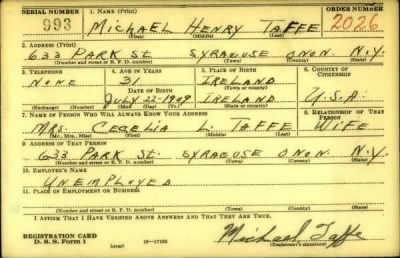 SERIAL NUMBER 1. NAME (Print) ORDER NUMBER
993 MICHAEL HENRY TAFFE 2026
(First) (Middle) (Last)
2. ADDRESS (Print)
633 PARK ST SYRACUSE ONON. N.Y.
(Number and street or R. F. D. number) (Town) (County) (State)
3. TELEPHONE 4. AGE IN YEARS 5. PLACE OF BIRTH 6. COUNTRY OF CITIZENSHIP
NONE 31 IRELAND
DATE OF BIRTH (Town or county)
JULY 22 1909 IRELAND U.S.A.
(Exchange) (Number) (Mo.) (Day) (Yr.) (State or country)
7. NAME OF PERSON WHO WILL ALWAYS KNOW YOUR ADDRESS 8. RELATIONSHIP OF THAT PERSON
MRS. CECELIA L. TAFFE WIFE
(Mr., Mrs., Miss) (First) (Middle) (Last)
9. ADDRESS OF THAT PERSON
633 PARK ST. SYRACUSE ONON N.Y.
(Number and street or R. F. D. number) (Town) (County) (State)
10. EMPLOYER'S NAME
UNEMPLOYED
11. PLACE OF EMPLOYMENT OR BUSINESS
(Number and street or R. F. D. number) (Town) (County) (State)
I AFFIRM THAT I HAVE VERIFIED ABOVE ANSWERS AND THAT THEY ARE TRUE.
REGISTRATION CARD
D. S. S. Form 1 (over) 16—17105 Michael Taffe
(Registrant's signature)